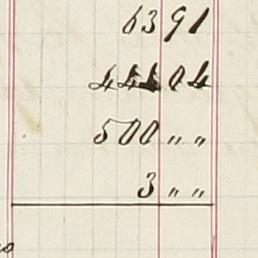 63 91
04
500 " "
3 " "